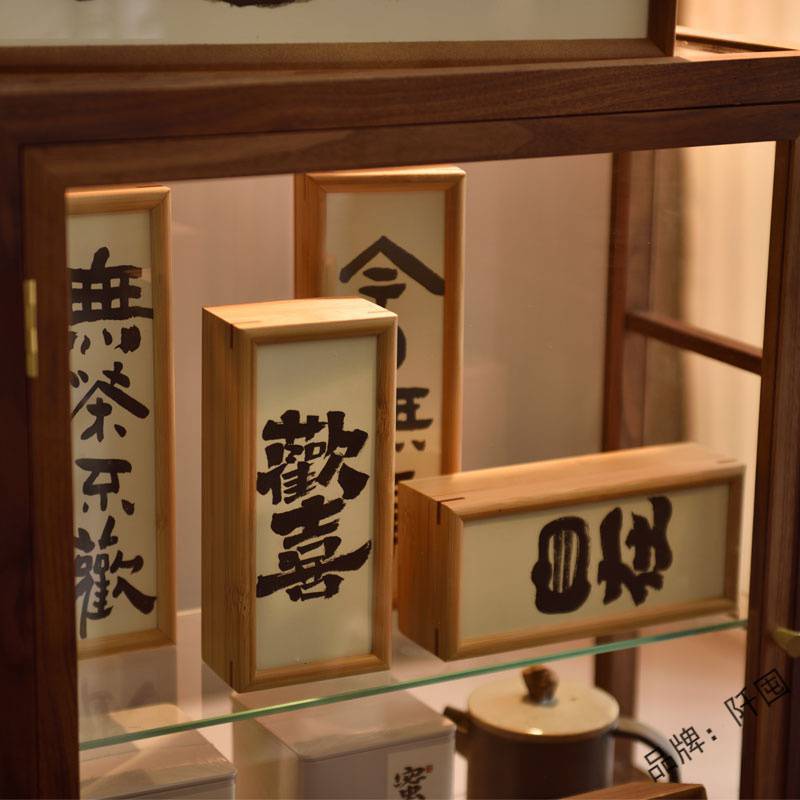 無茶不歡
歡喜
今日無
自在
蜜
品牌：阡囤